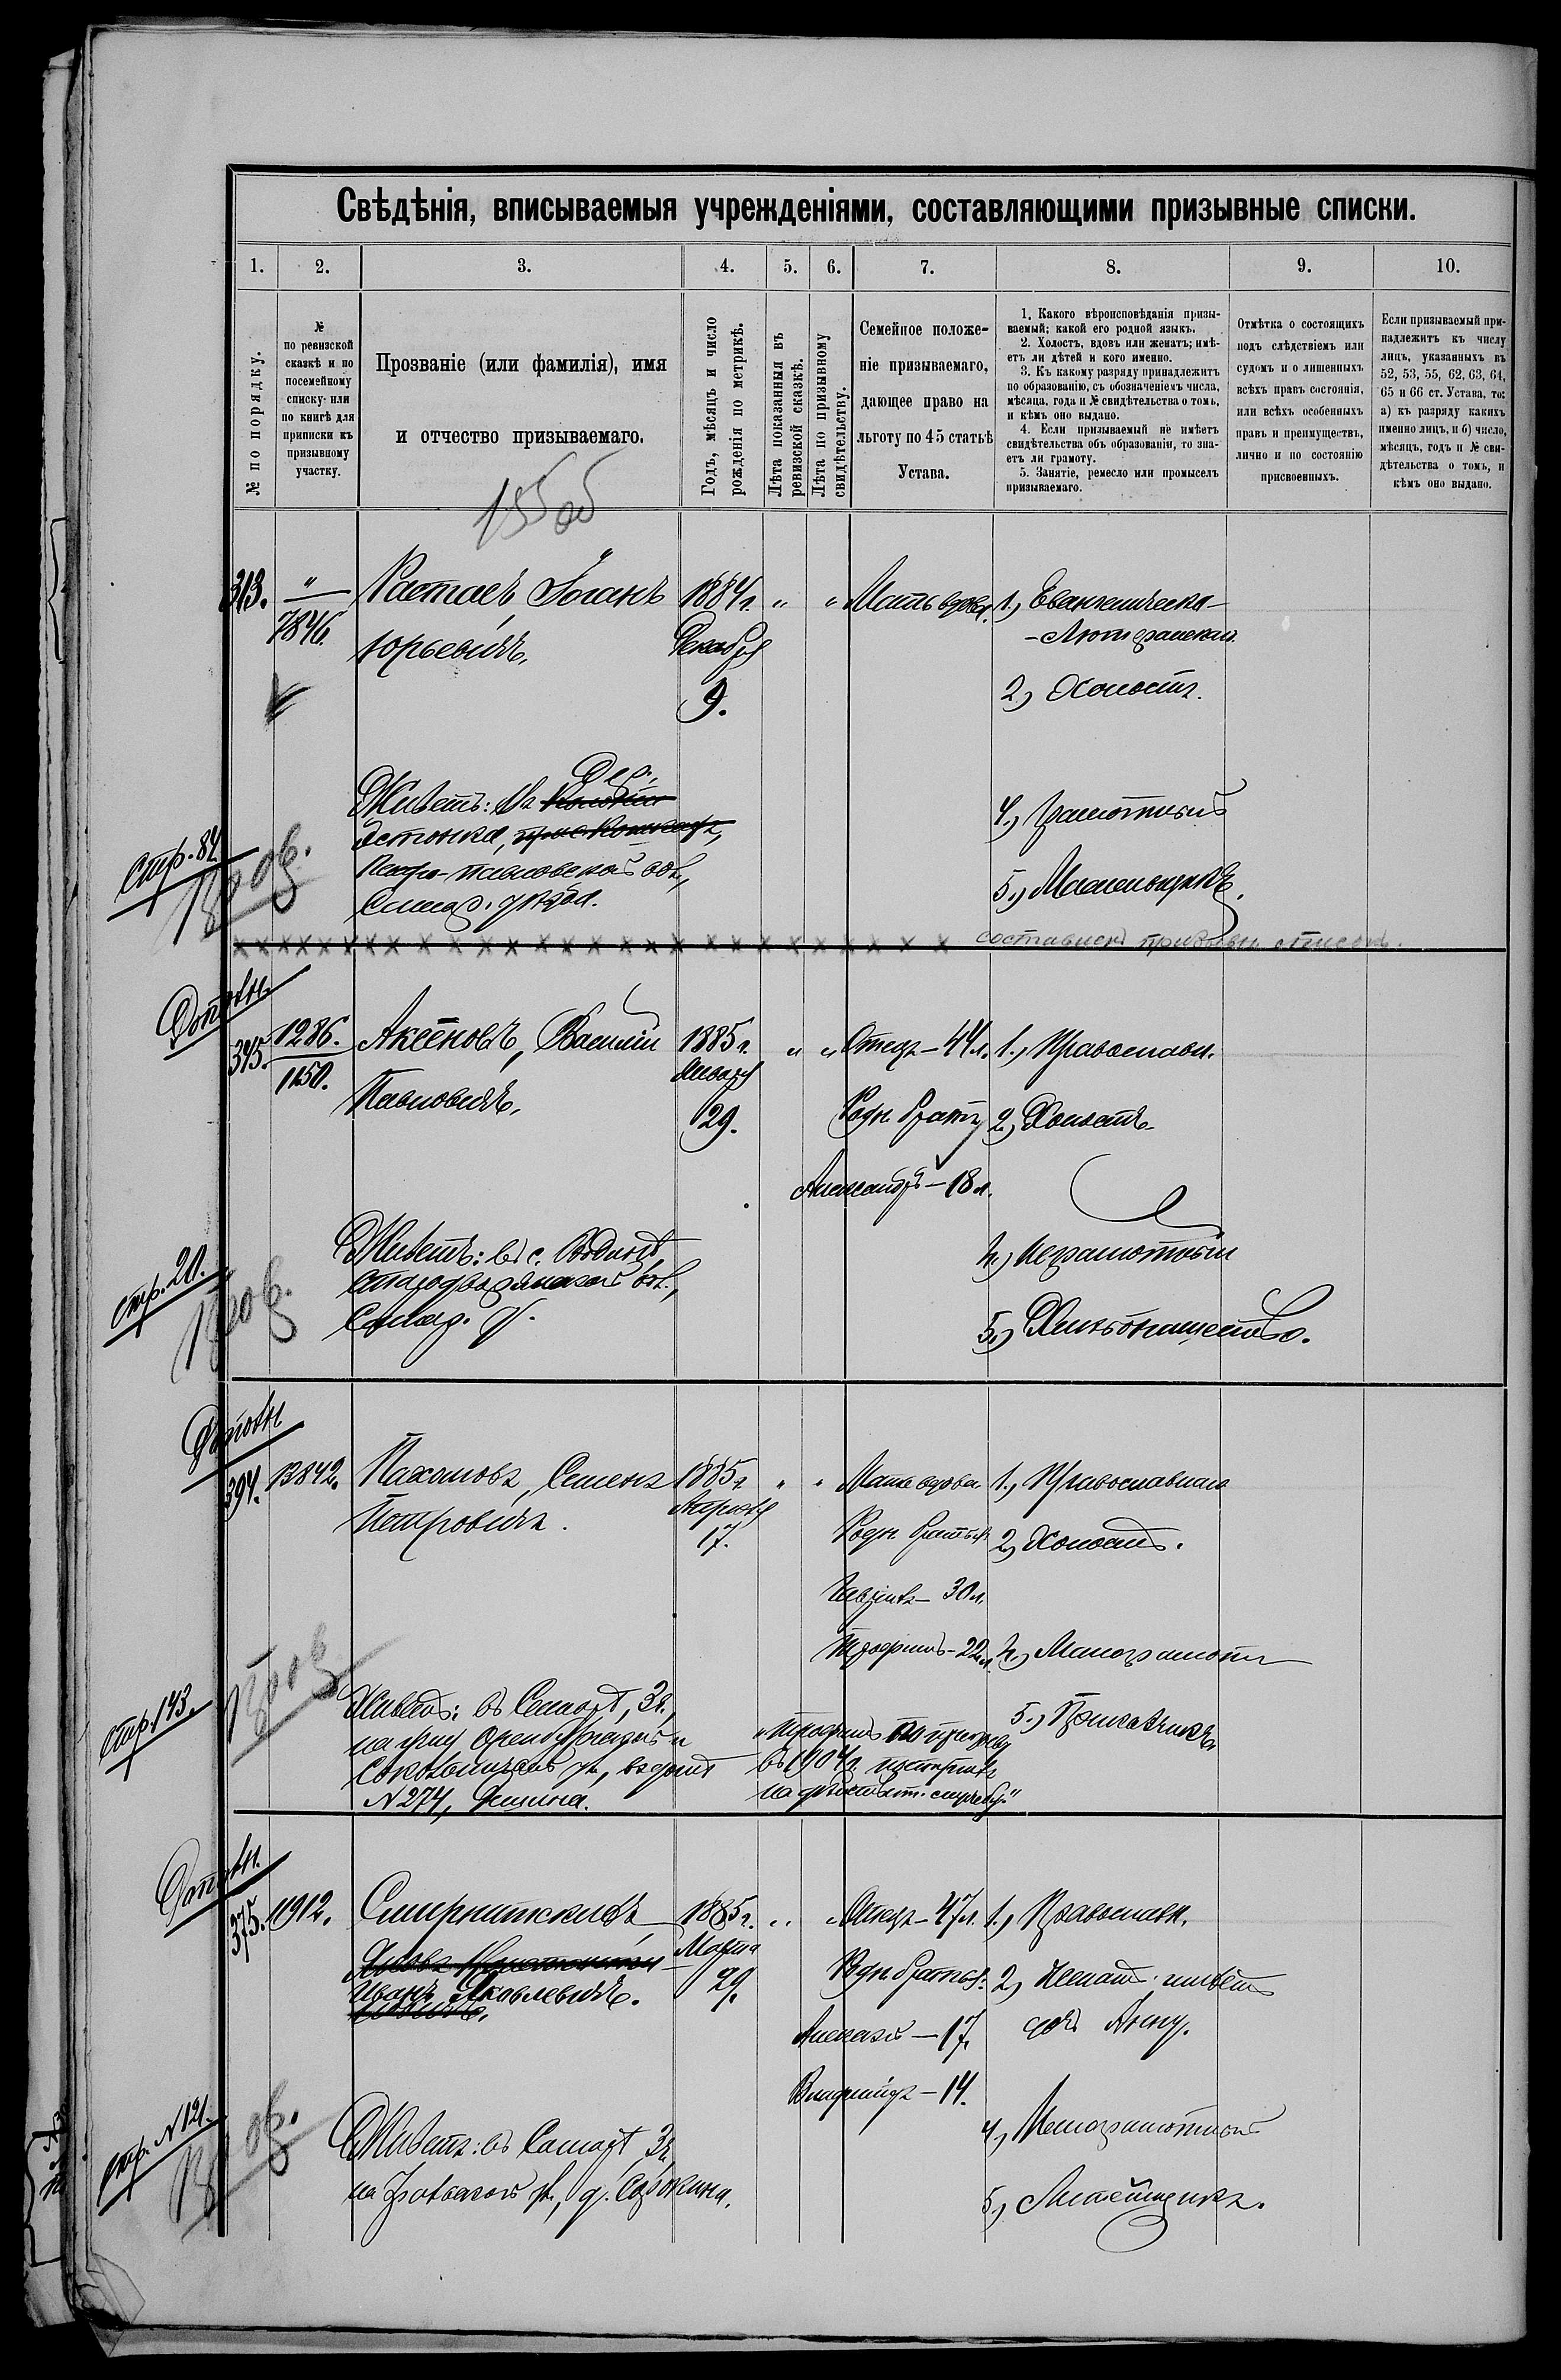 Свѣдѣнія, вписываемыя учрежденіями, составляющими призывные списки.
1. 2. 3. 4. 5. 6. 7. 8. 9. 10.
№ по порядку.
№
по ревизской
сказкѣ и по
посемейному
списку или
по книгѣ для
приписки къ
призывному
участку.
Прозваніе (или фамилія), имя
и отчество призываемаго.
Годъ, мѣсяцъ и число
рожденія по метрикѣ.
Лѣта показанныя въ
ревизской сказкѣ.
Лѣта по призывному
свидѣтельству.
Семейное положе-
ніе призываемаго,
дающее право на
льготу по 45 статьѣ
Устава.
1. Какого вѣроисповѣданія призы-
ваемый; какой его родной языкъ.
2. Холостъ, вдовъ или женатъ; имѣ-
етъ ли дѣтей и кого именно.
3. Къ какому разряду принадлежитъ
по образованію, съ обозначеніемъ числа,
мѣсяца, года и № свидѣтельства о томъ,
и кѣмъ оно выдано.
4. Если призываемый не имѣетъ
свидѣтельства объ образованіи, то зна-
етъ ли грамоту.
5. Занятіе, ремесло или промыселъ
призываемаго.
Отмѣтка о состоящихъ
подъ слѣдствіемъ или
судомъ и о лишенныхъ
всѣхъ правъ состоянія,
или всѣхъ особенныхъ
правъ и преимуществъ,
лично и по состоянію
присвоенныхъ.
Если призываемый при-
надлежитъ къ числу
лицъ, указанныхъ въ
52, 53, 55, 62, 63, 64,
65 и 66 ст. Устава, то:
а) къ разряду какихъ
именно лицъ, и б) число,
мѣсяцъ, годъ и № сви-
дѣтельства о томъ, и
кѣмъ оно выдано.
313.
"
7846.
Растасъ, Іоганъ
Юрьевичъ.
1884 г.
Декабря
9.
" "
Мать вдова.
1.) Евангелическо-
-Лютеранскаго.
2.) Холостъ.
4.) Грамотный
5.) Машинистъ.
Дер.
Живетъ: На
Эстонка,
вол.,
Самар. уѣзда.
Стр. 84
Пров.
составленъ призывн. списокъ.
Дополн.
345.
1286.
1150.
Аксеновъ, Василій
Павловичъ.
1885 г.
Января
29.
" "
Отецъ – 44 л.
Родн. братъ
Александръ – 18 л.
1.) Православн.
2.) Холостъ.
4.) Неграмотный
5.) Хлѣбопашество.
Живетъ: въ с. Водинѣ,
Стародворянской вол.,
Самар. у.
Стр. 20.
Пров.
Дополн.
394.
13842.
Пахомовъ, Семенъ
Петровичъ.
1885 г.
Апрѣля
17.
" "
Мать вдова
Родн. братья:
Гавріилъ – 30 л.
Трофимъ – 22 л.
1.) Православнаго
2.) Холостъ.
4.) Малограмотн
5.) Приказчикъ
Живетъ: въ Самарѣ, 3 ч.,
на углу Оренбургской и
Сокольничьей ул., въ домѣ
№ 274, Дешина.
"Трофимъ по призыву
въ 1904 г. поступилъ
на дѣйствит. службу."
Стр. 143.
Пров.
Дополн.
375.
11912.
Смирнитскихъ
Иванъ Яковлевичъ.
1885 г.
Марта
29.
" "
Отецъ – 47 л.
Родн. братья:
Алексѣй – 17.
Владиміръ – 14.
1.) Православн.
2.) Женатъ; имѣетъ
дочь Анну.
4.) Малограмотный
5.) Литейщикъ.
Живетъ: въ Самарѣ 3 ч.
на ул., д. Сорокина.
Стр. № 121.
Пров.